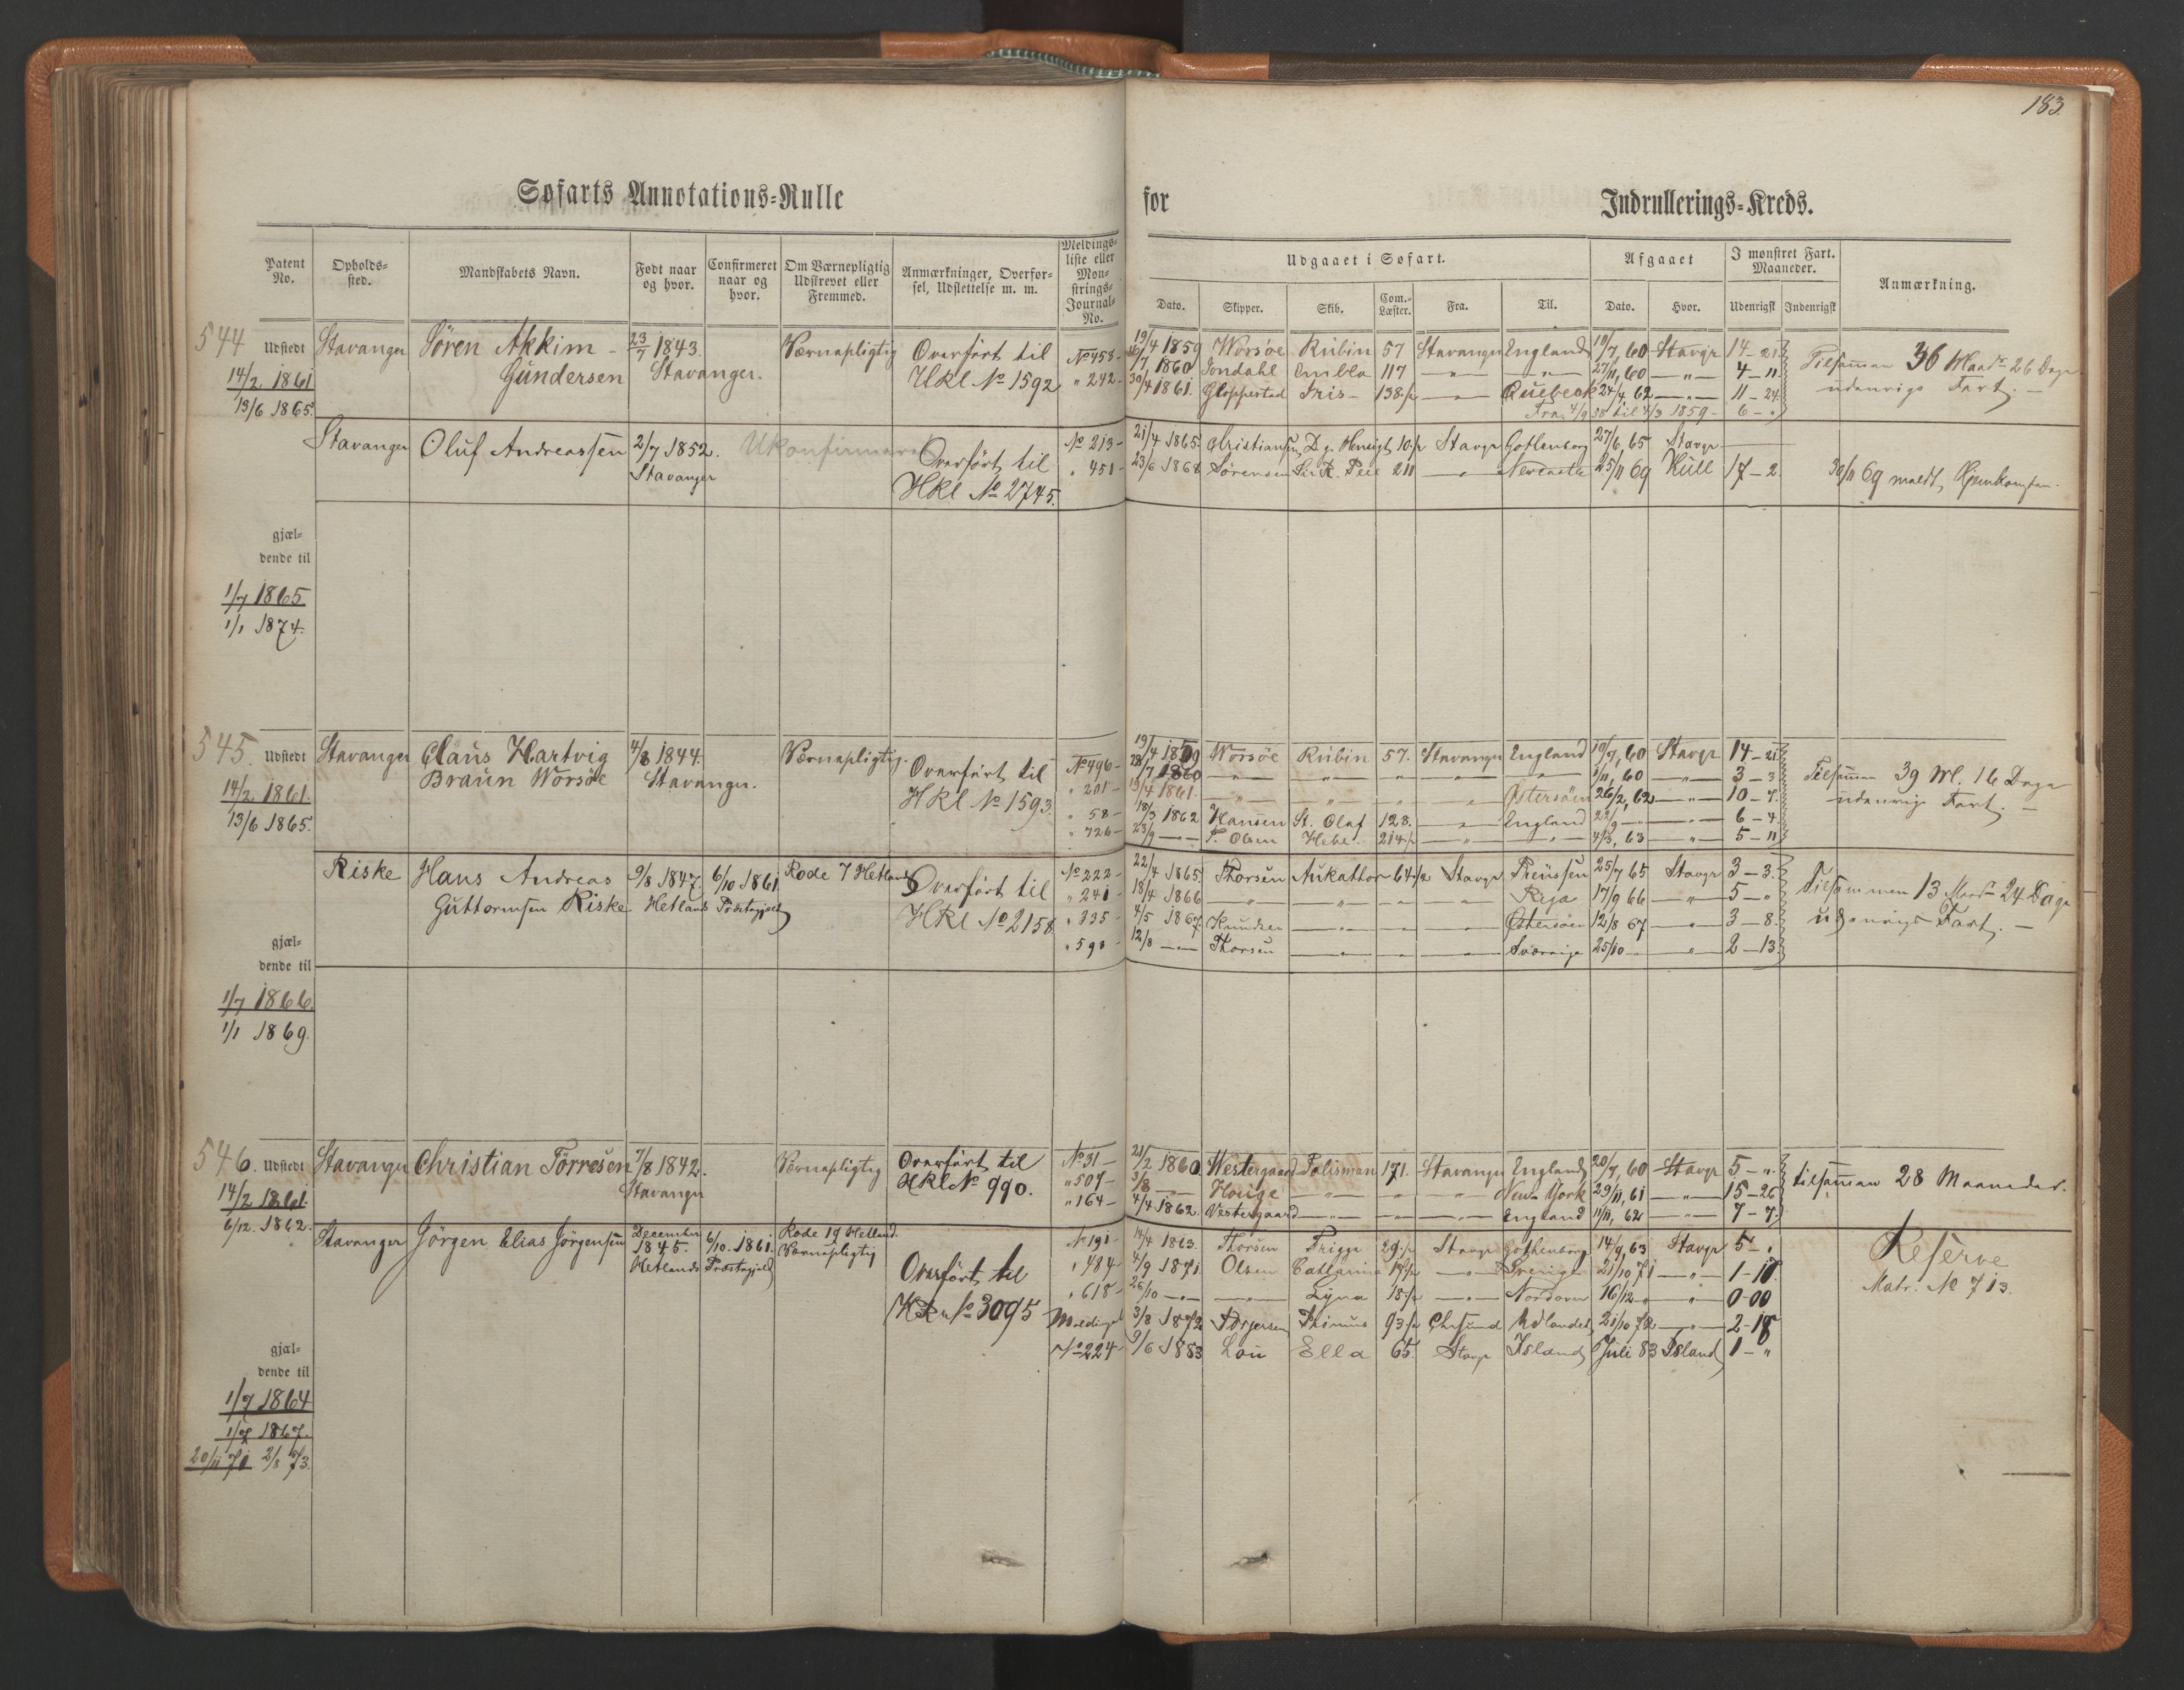 183
Søfarts Annotations=Rulle for Indrullerings=Kreds.
Patent No. Opholds=sted. Mandskabets Navn. Født naar og hvor. Confirmeret naar og hvor. Om Værnepligtig Udskrevet eller Fremmed. Anmærkninger, Overfør-sel, Udslettelse m. m. Meldings=liste eller Mon=strings=Journal=No.
Udgaaet i Søfart. Afgaaet I mønstret Fart. Maaneder. Anmærkning.
Dato. Skipper. Skib. Com.-Læster. Fra. Til. Dato. Hvor. Udenrigsk Indenrigsk
544 Udstedt Stavanger Sören Akkim 23/7 1843. Værnepligtig Overført til No 458
14/2 1861 Gundersen Stavanger. HRl No 1592 " 242
13/6 1865.
19/4 1859 Worsöe Rubin 57 Stavanger England 10/7, 60 Stavgr 14-21
1860 Jondahl Embla 117 — " — — " — 27/11, 60 — " — 4-11
30/4 1861. Gloppestad Iris 138 1/2 — " — Quebeck 24/4, 62 — " — 11-24
Fra 4/9 58 til 4/3 1859 - 6 - "
Tilsamman 36 Maadr 26 Dage
udenrigs Fart. —
Stavanger Oluf Andreassen 2/7 1852. Ukonfirmeret Overført til No 213
Stavanger HRl No 2745. " 451
21/4 1865 Christiansen D. g. Hensigt 10 1/2 Stavgr Gothenborg 27/6, 65 Stavgr
23/6 1868 Sörensen Sir R. Peel 211 — " — Newcastle 25/11 69 Hull 17-2.
30/11 69 meldt Hjemkomsten.
gjæl=
dende til
1/7 1865
1/1 1874.
545. Udstedt Stavanger Claus Hartvig 4/8 1844. Værnepligtig. Overført til No 496
14/2 1861. Braun Worsöe Stavanger. HRl No 1593. " 201
13/6 1865. " 58
" 726
19/4 1859 Worsöe Rubin 57. Stavanger England 10/7, 60 Stavgr 14-21
28/7 1860 — " — — " — — " — 1/11, 60 — " — 3-3
13/4 1861 — " — — " — Östersöen 26/2, 62 — " — 10-7.
18/3 1862 Hansen St. Olaf 128. — " — England 22/9 — " — 6-4
23/9 — T. Olsen Hebe 214 1/2 — " — — " — 4/3, 63 — " — 5-11
Tilsamman 39 M. 16 Dage
udenrigs Fart. —
Riske Hans Andreas 9/8 1847. 6/10 1861. Rode 7 Hetland Overført til No 222
Guttormsen Riske Hetlands Præstegjeld HRl No 2158 " 241
" 335
" 598
22/4 1865 Thorsen Aukathor 64 1/2 Stavgr Preussen 25/7 65 Stavgr 3-3.
18/4 1866 — " — — " — Riga 17/9 66 — " — 5-"
4/5 1867 Knudsen — " — Östersöen 12/8 67 — " — 3-8.
12/8 — Thorsen — " — Sverrige 25/10 — " — 2-13.
Tilsammen 13 Maadr 24 Dage
udenrigs Fart. —
gjæl=
dende til
1/7 1866.
1/1 1869.
546. Udstedt Stavanger Christian Törresen 7/8 1842. Værnepligtig Overført til No 31
14/2 1861. Stavanger HRl No 990. " 509
6/12. 1862. " 164
21/2 1860 Westergaard Talisman 171. Stavanger England 20/7, 60 Stavgr 5-".
3/8 — Houge — " — New York 29/11, 61 — " — 15-26
4/4 1862. Vestergaard — " — England 11/11, 62 — " — 7-7.
tilsamman 28 Maaneder.
Stavanger Jörgen Elias Jörgensen December 1845. 6/10. 1861. Rode 19 Hetland. No 191
Hetlands Præstegjeld Værnepligtig Overført til " 484
HRl No 3095 " 618
Meldingsl
No 224
14/4 1863. Thorsen Frigga 29 1/2 Stavgr Gothenborg 14/9, 63 Stavgr 5-".
4/9 1871. Olsen Catharina 19 1/2 — " — Sverige 21/10 71 — " — 1-17.
26/10 — " — Lyna 18 1/2 — " — Nordover 16/12 — " — 0-00
3/8 1872 Törgersen 93 1/2 Chrsund Udlandet 21/10 72 — " — 2-18
9/6 1883 Lau Ella 65. Stavgr Island Juli 83 Island 1-"
Reserve
Matr. No 713.
gjæl=
dende til
1/7 1864
1/7 1867.
20/11 71 2/8 73.